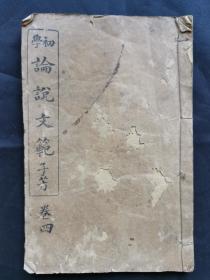 初學
論說文範
子芳 卷四